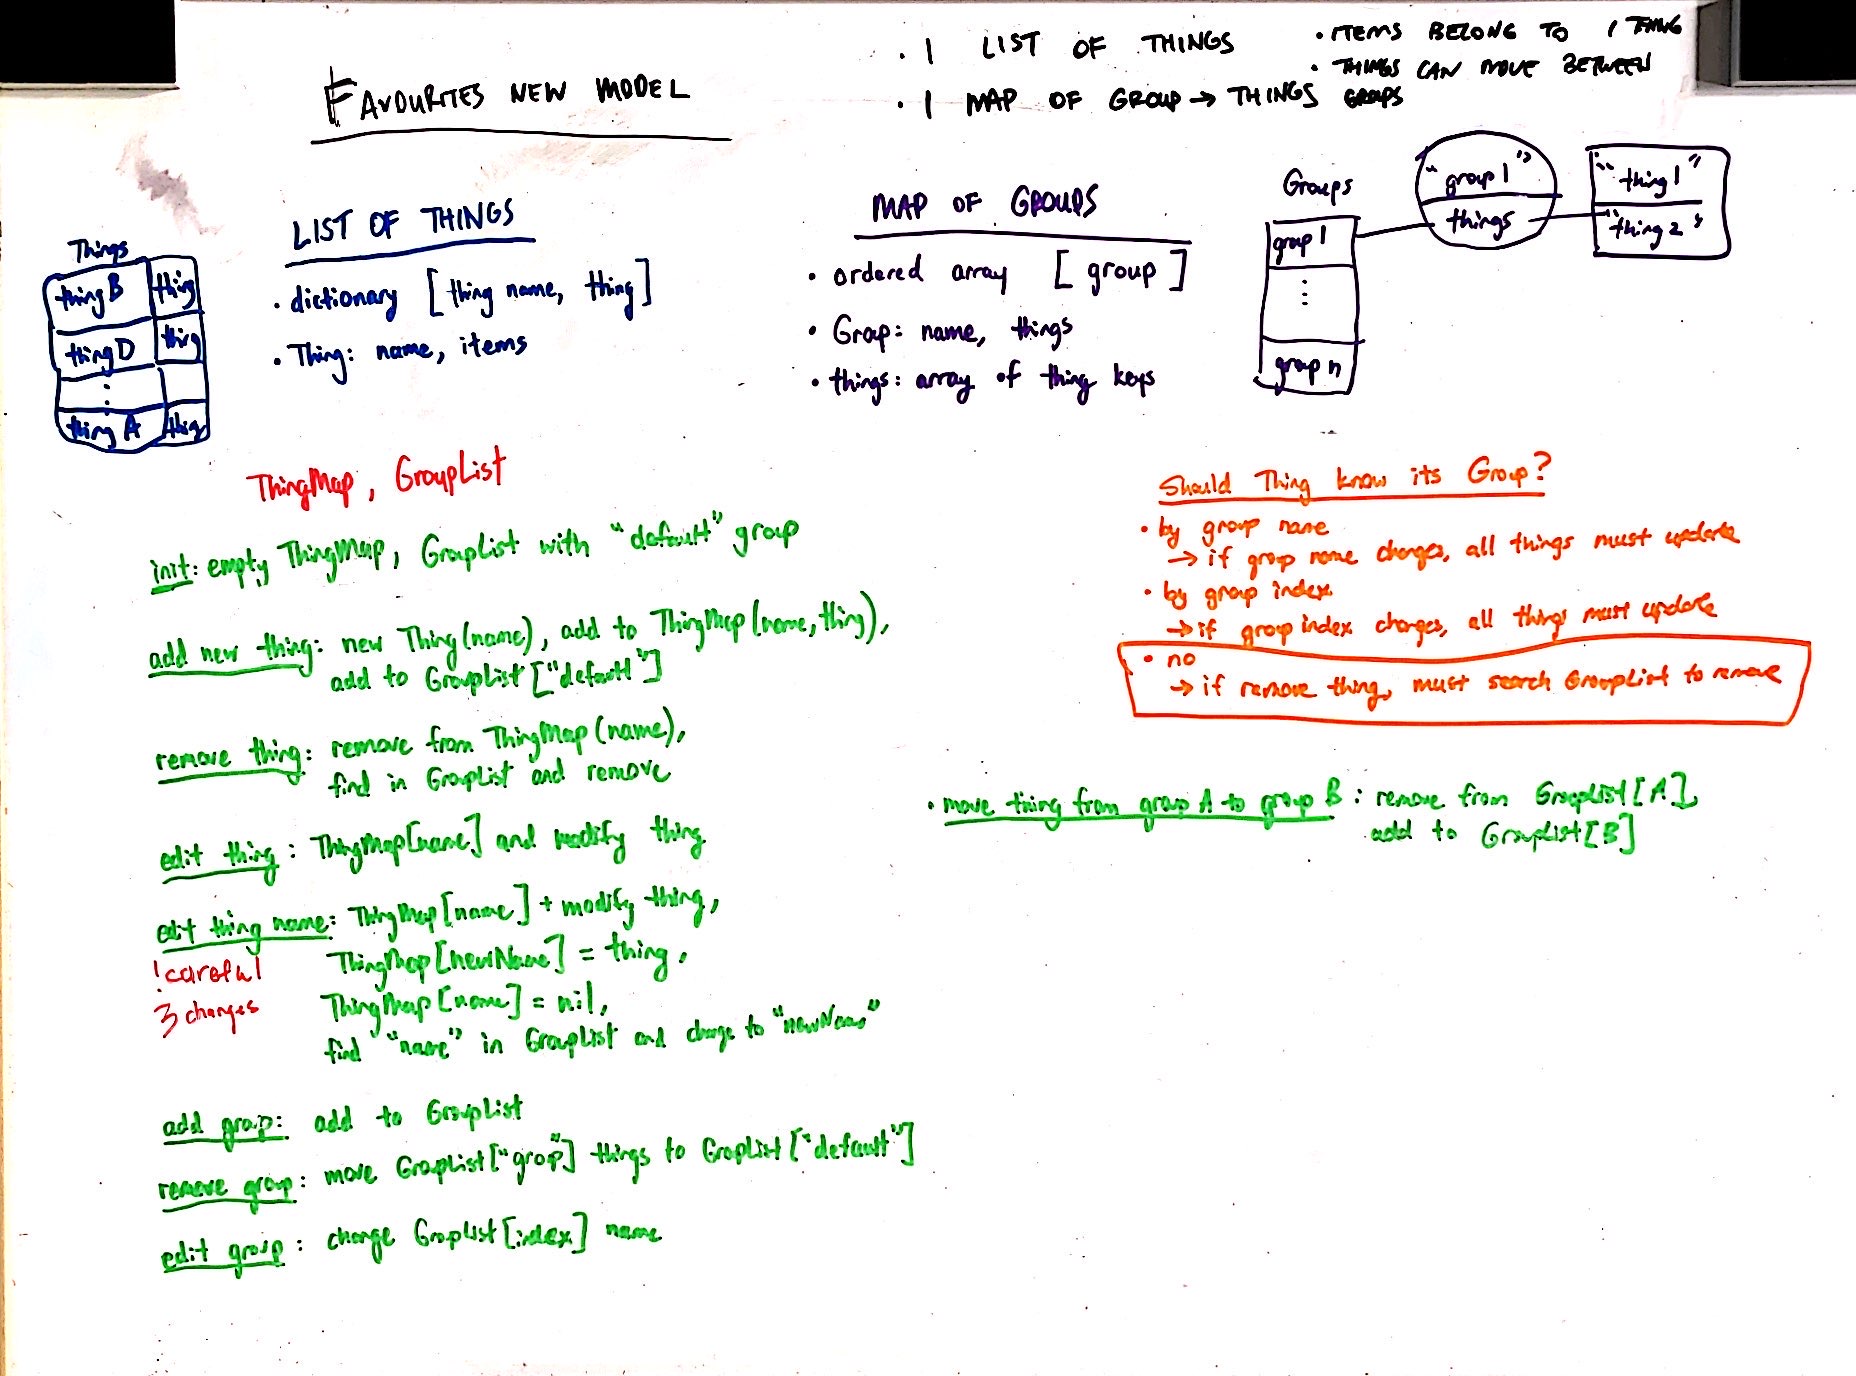 FAVOURITES NEW MODEL
• 1 LIST OF THINGS
• 1 MAP OF GROUP → THINGS
• ITEMS BELONG TO 1 THING
• THINGS CAN MOVE BETWEEN
GROUPS
Things
thing B thing
thing D thing
⋮
thing A thing
LIST OF THINGS
• dictionary [thing name, thing]
• Thing: name, items
MAP OF GROUPS
• ordered array [group]
• Group: name, things
• things: array of thing keys
Groups
group 1
⋮
group n
"group 1"
things
"thing 1"
"thing 2"
ThingMap, GroupList
init: empty ThingMap, GroupList with "default" group
add new thing: new Thing(name), add to ThingMap(name, thing),
add to GroupList["default"]
remove thing: remove from ThingMap(name),
find in GroupList and remove
edit thing: ThingMap[name] and modify thing
edit thing name: ThingMap[name] + modify thing,
ThingMap[newName] = thing,
ThingMap[name] = nil,
find "name" in GroupList and change to "newName"
!careful
3 changes
add group: add to GroupList
remove group: move GroupList["group"] things to GroupList["default"]
edit group: change GroupList[index] name
Should Thing know its Group?
• by group name
→ if group name changes, all things must update
• by group index
→ if group index changes, all things must update
• no
→ if remove thing, must search GroupList to remove
• move thing from group A to group B: remove from GroupList[A],
add to GroupList[B]